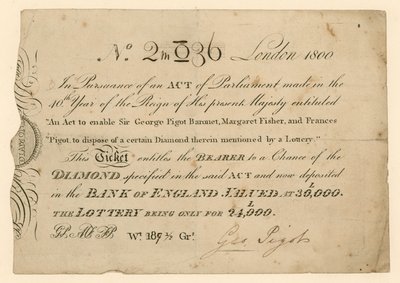 No. 2m 036 London 1800
In Pursuance of an ACT of Parliament, made in the
40th Year of the Reign of His present Majesty entituled
"An Act to enable Sir George Pigot Baronet, Margaret Fisher, and Frances
"Pigot, to dispose of a certain Diamond therein mentioned by a Lottery."
This Ticket entitles the BEARER to a Chance of the
DIAMOND specified in the said ACT and now deposited
in the BANK OF ENGLAND VALUED AT £30,000.
THE LOTTERY BEING ONLY FOR £24,000.
Wt. 187½ Grs.
Geo Pigot